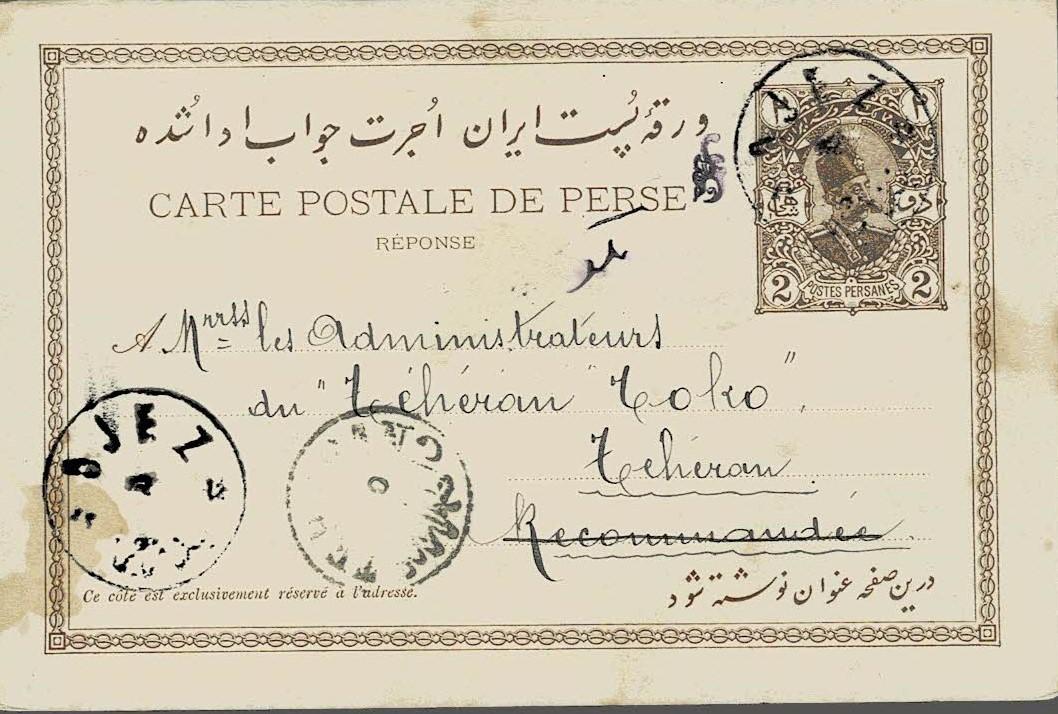 ورقۀ پُست ایران اُجرت جواب ادا شُده
CARTE POSTALE DE PERSE
RÉPONSE
۲ ۲
دو شاهی
2 POSTES PERSANES 2
A Mrss les Administrateurs
du "Téhéran Toko",
Téhéran
Recommandée
Ce côté est exclusivement réservé à l'adresse.
درین صفحه عنوان نوشته شود